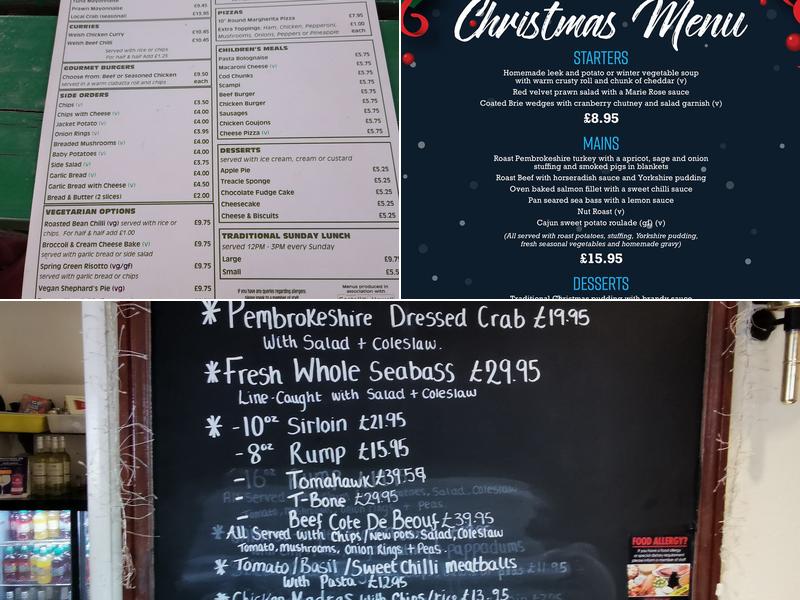 Prawn Mayonnaise £9.45
Local Crab (seasonal) £13.95
CURRIES
Welsh Chicken Curry £10.45
Welsh Beef Chilli £10.45
Served with rice or chips
For half & half Add £1.25
GOURMET BURGERS
Choose from: Beef or Seasoned Chicken £9.50
served in a warm ciabatta roll and chips each
SIDE ORDERS
Chips (v) £3.50
Chips with Cheese (v) £4.00
Jacket Potato (v) £4.00
Onion Rings (v) £3.95
Breaded Mushrooms (v) £4.00
Baby Potatoes (v) £4.00
Side Salad (v) £3.75
Garlic Bread (v) £4.00
Garlic Bread with Cheese (v) £4.50
Bread & Butter (2 slices) £2.00
VEGETARIAN OPTIONS
Roasted Bean Chilli (vg) served with rice or £9.75
chips. For half & half add £1.00
Broccoli & Cream Cheese Bake (v) £9.75
served with garlic bread or side salad
Spring Green Risotto (vg/gf) £9.75
served with garlic bread or chips
Vegan Shephard's Pie (vg) £9.75
PIZZAS
10" Round Margherita Pizza £7.95
Extra Toppings: Ham, Chicken, Pepperoni, £1.00
Mushrooms, Onions, Peppers or Pineapple each
CHILDREN'S MEALS
Pasta Bolognaise £5.75
Macaroni Cheese (v) £5.75
Cod Chunks £5.75
Scampi £5.75
Beef Burger £5.75
Chicken Burger £5.75
Sausages £5.75
Chicken Goujons £5.75
Cheese Pizza (v) £5.75
DESSERTS
served with ice cream, cream or custard
Apple Pie £5.25
Treacle Sponge £5.25
Chocolate Fudge Cake £5.25
Cheesecake £5.25
Cheese & Biscuits £5.25
TRADITIONAL SUNDAY LUNCH
served 12PM - 3PM every Sunday
Large £9.7
Small £5.
If you have queries regarding allergens,
Menus produced in
association with
Christmas Menu
STARTERS
Homemade leek and potato or winter vegetable soup
with warm crusty roll and chunk of cheddar (v)
Red velvet prawn salad with a Marie Rose sauce
Coated Brie wedges with cranberry chutney and salad garnish (v)
£8.95
MAINS
Roast Pembrokeshire turkey with a apricot, sage and onion
stuffing and smoked pigs in blankets
Roast Beef with horseradish sauce and Yorkshire pudding
Oven baked salmon fillet with a sweet chilli sauce
Pan seared sea bass with a lemon sauce
Nut Roast (v)
Cajun sweet potato roulade (gf) (v)
(All served with roast potatoes, stuffing, Yorkshire pudding,
fresh seasonal vegetables and homemade gravy)
£15.95
DESSERTS
Traditional Christmas pudding with brandy sauce
* Pembrokeshire Dressed Crab £19.95
With Salad + Coleslaw.
* Fresh Whole Seabass £29.95
Line-Caught with Salad + Coleslaw
* -10oz Sirloin £21.95
- 8oz Rump £15.95
- Tomahawk £39.59
- T-Bone £29.95
Beef Cote De Beouf £39.95
* All Served with Chips/New pots, Salad, Coleslaw
Tomato, mushrooms, Onion Rings + Peas.
* Tomato/Basil/Sweet Chilli meatballs
With Pasta - £12.95
* Chicken Madras with Chips/rice £13.95
FOOD ALLERGY?
If you have a food allergy
or special dietary requirement
please inform a member of staff